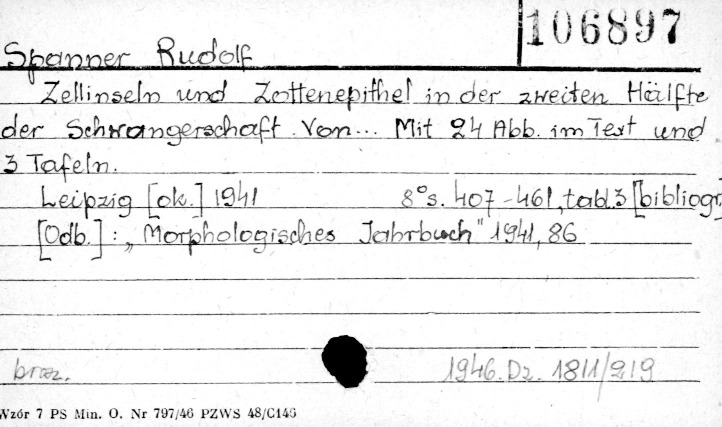 106897
Spanner Rudolf
Zellinseln und Zottenepithel in der zweiten Hälfte
der Schwangerschaft. Von... Mit 24 Abb. im Text und
3 Tafeln.
Leipzig [ok.] 1941 8° s. 407-461, tabl. 3 [bibliogr.
[Odb.]: „Morphologisches Jahrbuch" 1941, 86
1946. Dz. 1811/219
Wzór 7 PS Min. O. Nr 797/46 PZWS 48/C146